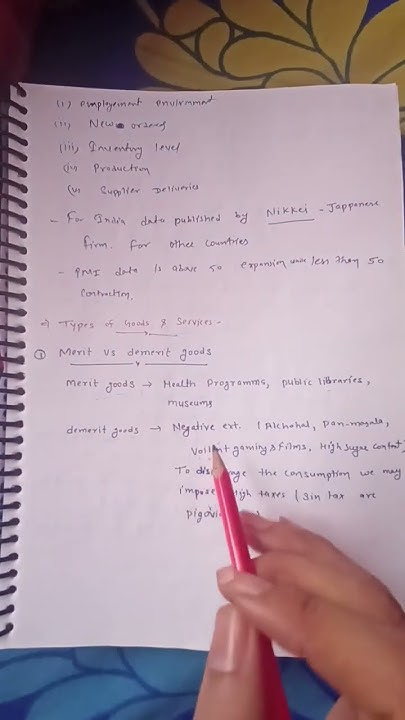 (i) employement envirnment
(ii) New orders
(iii) Inventory level
(iv) Production
(v) Supplier Deliveries
- For India data published by Nikkei - Japponese
firm. for other countries
- PMI data is above 50 expansion while less than 50
contraction.
⇒ Types of Goods & Services -
① Merit vs demerit goods
Merit goods → Health Programms, public libraries,
museums
demerit goods → Negative ext. (Alchohal, pan-masala,
gaming & films, High sugar content)
To the consumption we may
impose taxes (sin tax are